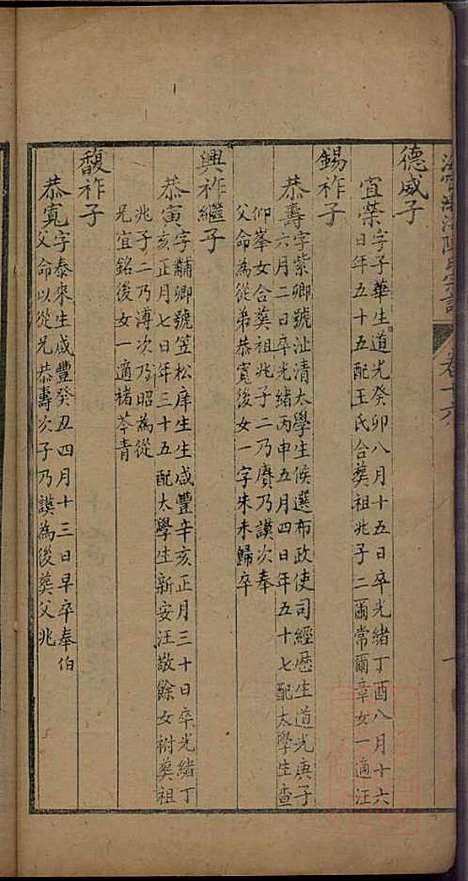 德威子
宜榮字子華生道光癸卯八月十五日卒光緒丁酉八月十六
日年五十五配王氏合葬祖兆子二爾常爾章女一適汪
錫祚子
恭壽字紫卿號沚清太學生候選布政使司經歷生道光庚子
六月二日卒光緒丙申五月四日年五十七配太學生查
仰峯女合葬祖兆子二乃賡乃謨次奉
父命為從弟恭寬後女一字朱未歸卒
興祚繼子
恭寅字黼卿號笠松庠生生咸豐辛亥正月三十日卒光緒丁
亥正月七日年三十五配太學生新安汪敬餘女祔葬祖
兆子二乃溥次乃昭為從
兄宜銘後女一適褚芩青
馥祚子
恭寬字泰來生咸豐癸丑四月十三日早卒奉伯
父命以從兄恭壽次子乃謨為後葬父兆